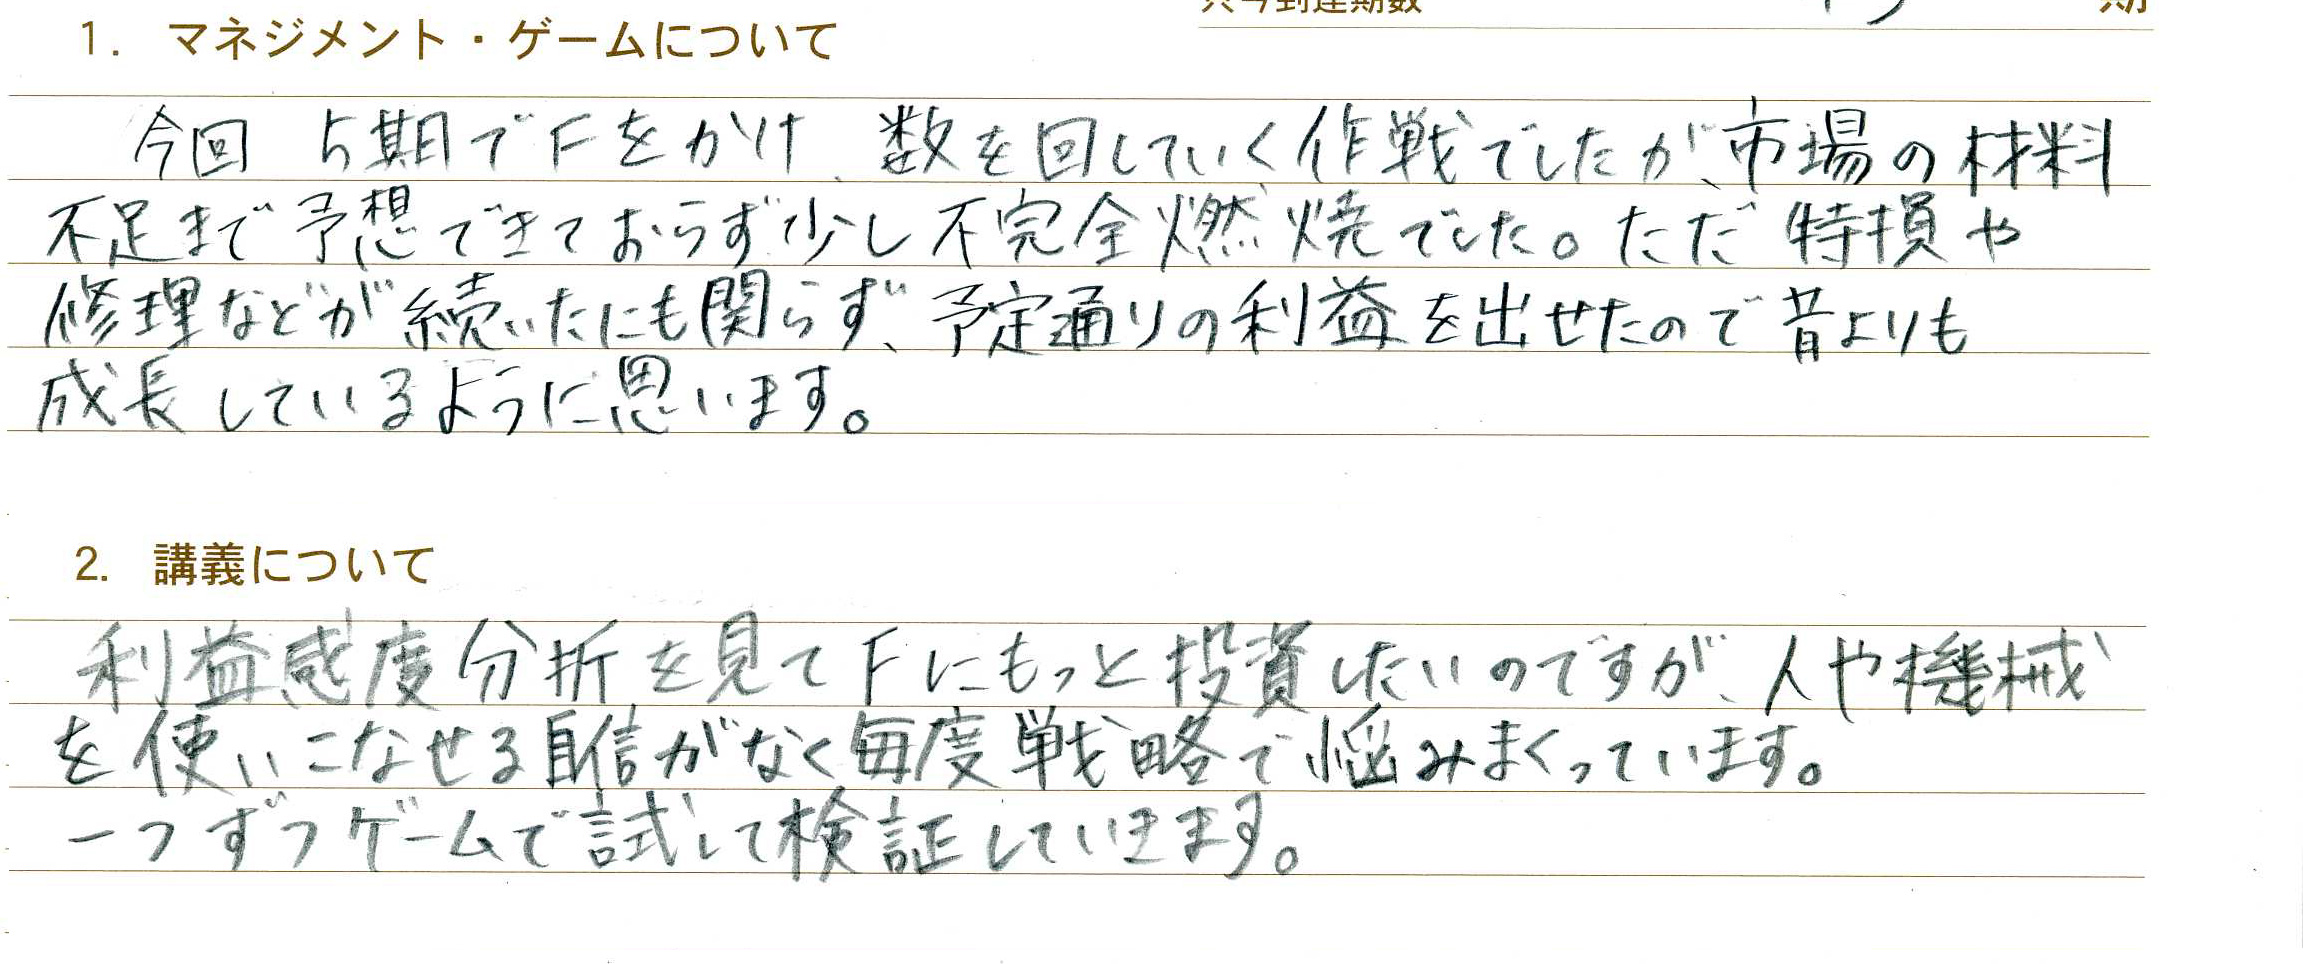 1. マネジメント・ゲームについて
今回 5期でFをかけ、数を回していく作戦でしたが、市場の材料
不足まで予想できておらず少し不完全燃焼でした。ただ特損や
修理などが続いたにも関らず、予定通りの利益を出せたので昔よりも
成長しているように思います。
2. 講義について
利益感度分析を見てFにもっと投資したいのですが、人や機械
を使いこなせる自信がなく毎度戦略で悩みまくっています。
一つずつゲームで試して検証していきます。